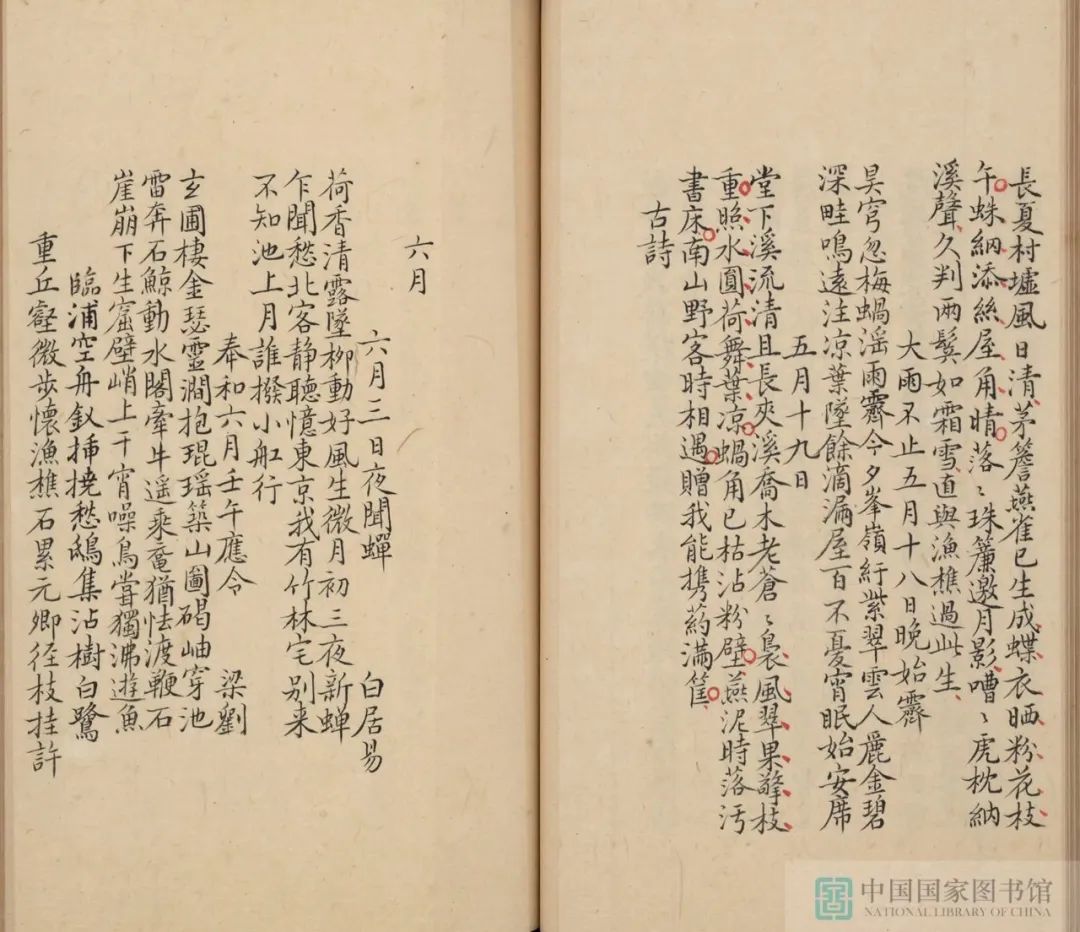 長夏村墟風日清茅簷燕雀已生成蝶衣晒粉花枝
午蛛網添絲屋角晴落〻珠簾邀月影嘈〻虎枕納
溪聲久判兩鬂如霜雪直與漁樵過此生
大雨不止五月十八日晚始霽
昊穹忽梅蝸滛雨霽今夕峯嶺紆紫翠雲人麗金碧
深畦鳴遠注涼葉墜餘滴漏屋百不憂宵眠始安席
五月十九日
堂下溪流清且長夾溪喬木老蒼〻裊風翠果擎枝
重照水圓荷舞葉凉蝸角已枯沾粉壁燕泥時落汚
書床南山野客時相遇贈我能携葯滿筐
古詩
六月
六月三日夜聞蟬 白居易
荷香清露墜柳動好風生微月初三夜新蟬
乍聞愁北客静聽憶東京我有竹林宅别来
不知池上月誰撥小舡行
奉和六月壬午應令 梁劉
玄圃棲金瑟靈澗抱琨瑶築山圖碣岫穿池
雷奔石鯨動水闊牽牛遥乘奄猶怯渡鞭石
崖崩下生窟壁峭上干宵噪鳥嘗獨沸遊魚
臨浦空舟釵揷撓愁鴟集沾樹白鷺
重丘壑微步懷漁樵石累元卿徑枝挂許
中国国家图书馆
NATIONAL LIBRARY OF CHINA